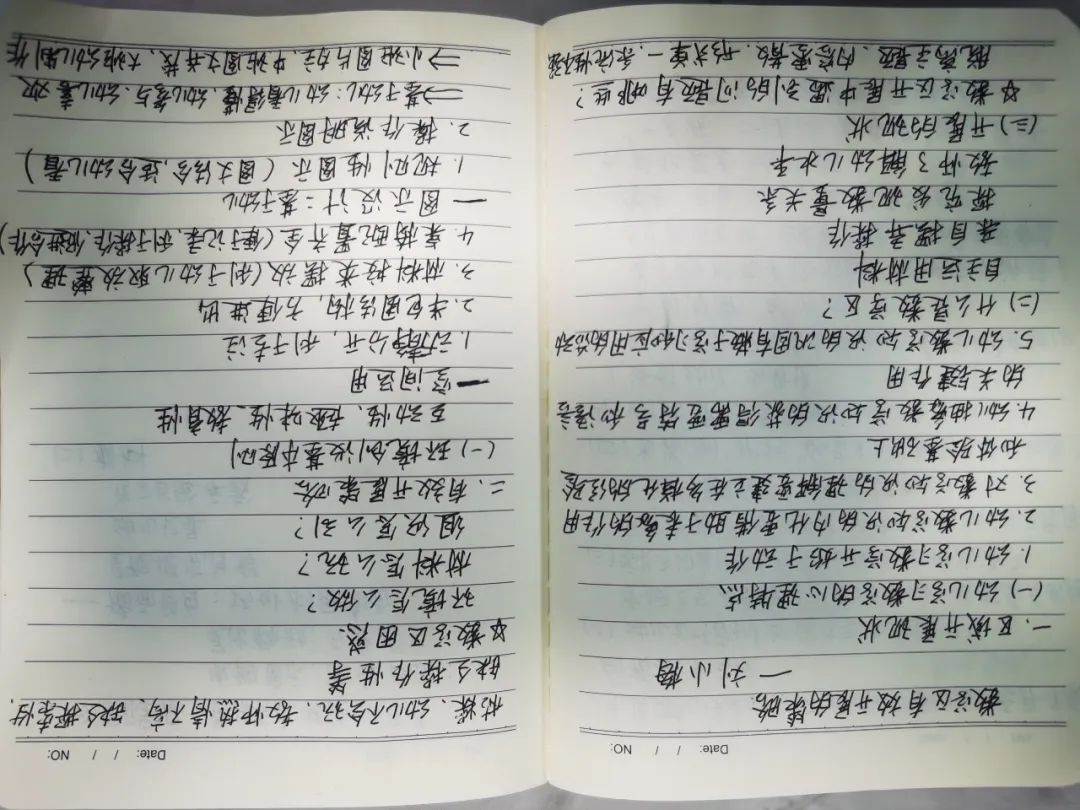 Date: / / NO:
数学区有效开展的策略
— 刘小
一.区域开展现状
(一)幼儿学习数学的心理特点
1.幼儿学习数学开始于动作
2.幼儿数学知识的内化要借助于表象的作用
3.对数学知识的理解要建立在多样化的经验
和体验基础上
4.幼儿抽象数学知识的获得需要符号和语言
的关键作用
5.幼儿数学知识的巩固有赖于学习和应用的活动
(二)什么是数学区?
自主运用材料
亲自摆弄操作
探究发现数量关系
教师了解幼儿水平
(三)开展的现状
☆数学区开展中遇到的问题有哪些?
脱离主题、内容零散、形式单一、系统性不强
Date: / / NO:
枯燥、幼儿不会玩、教师热情不高、缺乏探索性、
缺乏操作性 等
☆数学区困惑:
环境怎么做?
材料怎么玩?
组织怎么引?
二.有效开展策略
(一)环境创设基本原则
互动性、趣味性、教育性
—空间运用
1.动静分开,利于专注
2.半包围结构,方便进出
3.材料按类摆放(利于幼儿取放整理)
4.桌椅配置齐全(便于记录,利于操作,促进合作)
—图示设计:基于幼儿
1.规则性图示(图文结合,适合幼儿看)
2.操作说明图示
⇒基于幼儿:幼儿看得懂、幼儿参与、幼儿喜欢
⇒小班图片为主,中班图文并茂,大班幼儿制作